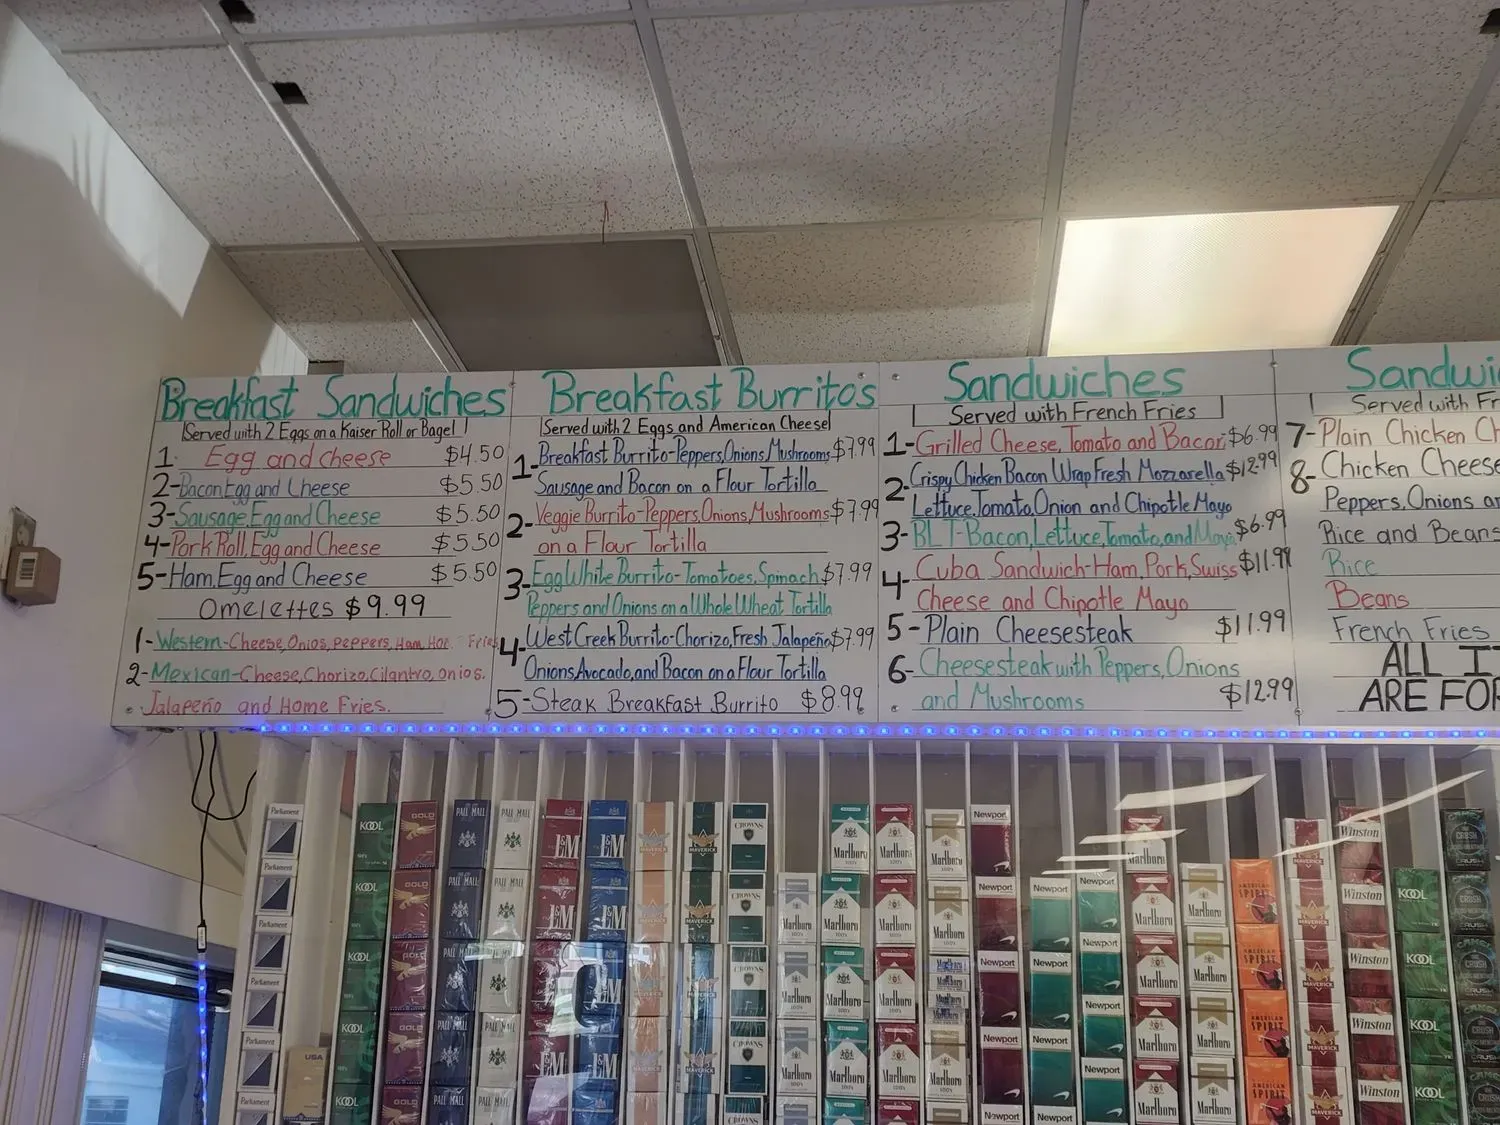 Breakfast Sandwiches
Served with 2 Eggs on a Kaiser Roll or Bagel
1- Egg and cheese $4.50
2-Bacon,Egg and Cheese $5.50
3-Sausage,Egg and Cheese $5.50
4-Pork Roll,Egg and Cheese $5.50
5-Ham,Egg and Cheese $5.50
Omelettes $9.99
1-Western-Cheese,Onios,Peppers,Ham, Fries
2-Mexican-Cheese,Chorizo,Cilantro,onios.
Jalapeño and Home Fries.
Breakfast Burritos
Served with 2 Eggs and American Cheese
1-Breakfast Burrito-Peppers,Onions,Mushrooms $7.99
Sausage and Bacon on a Flour Tortilla
2-Veggie Burrito-Peppers,Onions,Mushrooms $7.99
on a Flour Tortilla
3-Egg White Burrito-Tomatoes,Spinach $7.99
Peppers and Onions on a Whole Wheat Tortilla
4-West Creek Burrito-Chorizo,Fresh Jalapeño $7.99
Onions,Avocado,and Bacon on a Flour Tortilla
5-Steak Breakfast Burrito $8.99
Sandwiches
Served with French Fries
1-Grilled Cheese,Tomato and Bacon $6.99
2-Crispy Chicken Bacon Wrap Fresh Mozzarella $12.99
Lettuce,Tomato,Onion and Chipotle Mayo
3-BLT-Bacon,Lettuce,Tomato,and Mayo $6.99
4-Cuba Sandwich-Ham,Pork,Swiss $11.99
Cheese and Chipotle Mayo
5-Plain Cheesesteak $11.99
6-Cheesesteak with Peppers,Onions
and Mushrooms $12.99
Sandwi
Served with Fr
7-Plain Chicken Ch
8-Chicken Cheese
Peppers,Onions a
Rice and Beans
Rice
Beans
French Fries
ALL IT
ARE FOR
Parliament
KOOL
GOLD
PALL MALL
PALL MALL
L&M
L&M
MAVERICK
MAVERICK
CROWNS
Marlboro
Marlboro
Marlboro
Marlboro
Newport
Newport
Newport
Marlboro
Marlboro
AMERICAN SPIRIT
MAVERICK
Winston
KOOL
CAMEL
CRUSH
USA